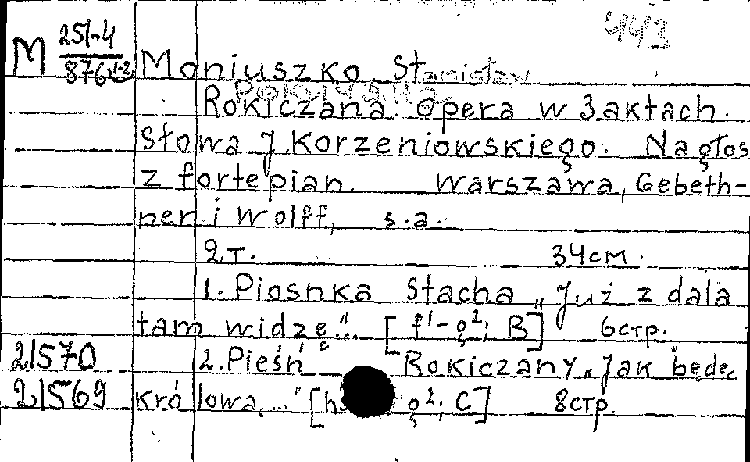 443
M 251-4
876 1-2 Moniuszko, Stanisław
Rokiczana. Opera w 3 aktach.
Słowa J. Korzeniowskiego. Na głos
z fortepian. Warszawa, Gebeth-
ner i Wolff, s.a.
2 т. 34 см.
1. Piosnka Stacha „Już z dala
tam widzę“... [f¹-g²; B] 6 стр.
21570 2. Pieśń Rokiczany „Jak będę
21569 królowa..." [ g²; C] 8 стр.